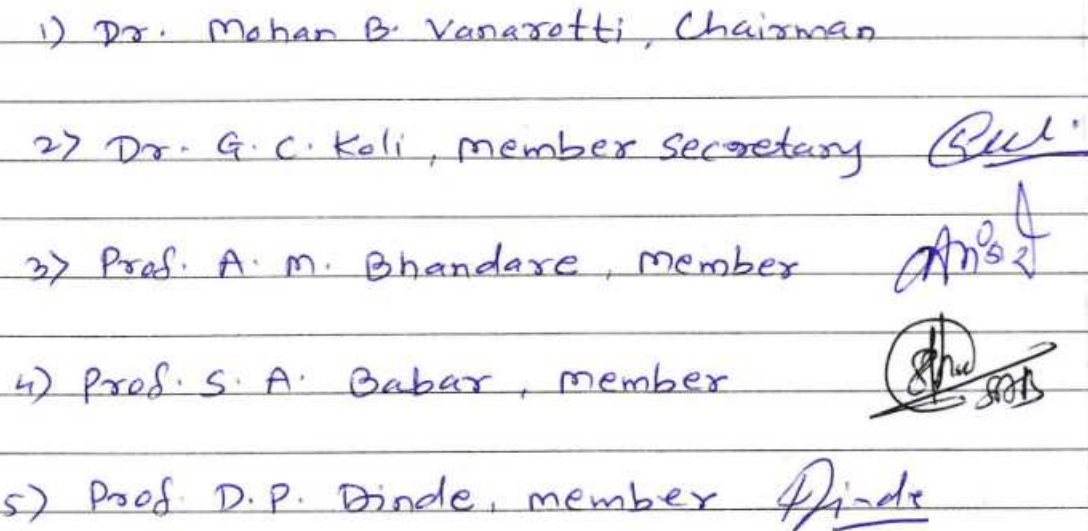 1) Dr. Mohan B. Vanarotti, Chairman
2) Dr. G. C. Koli, member secretary
3) Prof. A. M. Bhandare, member
4) Prof. S. A. Babar, member
5) Prof. D. P. Dinde, member Dinde